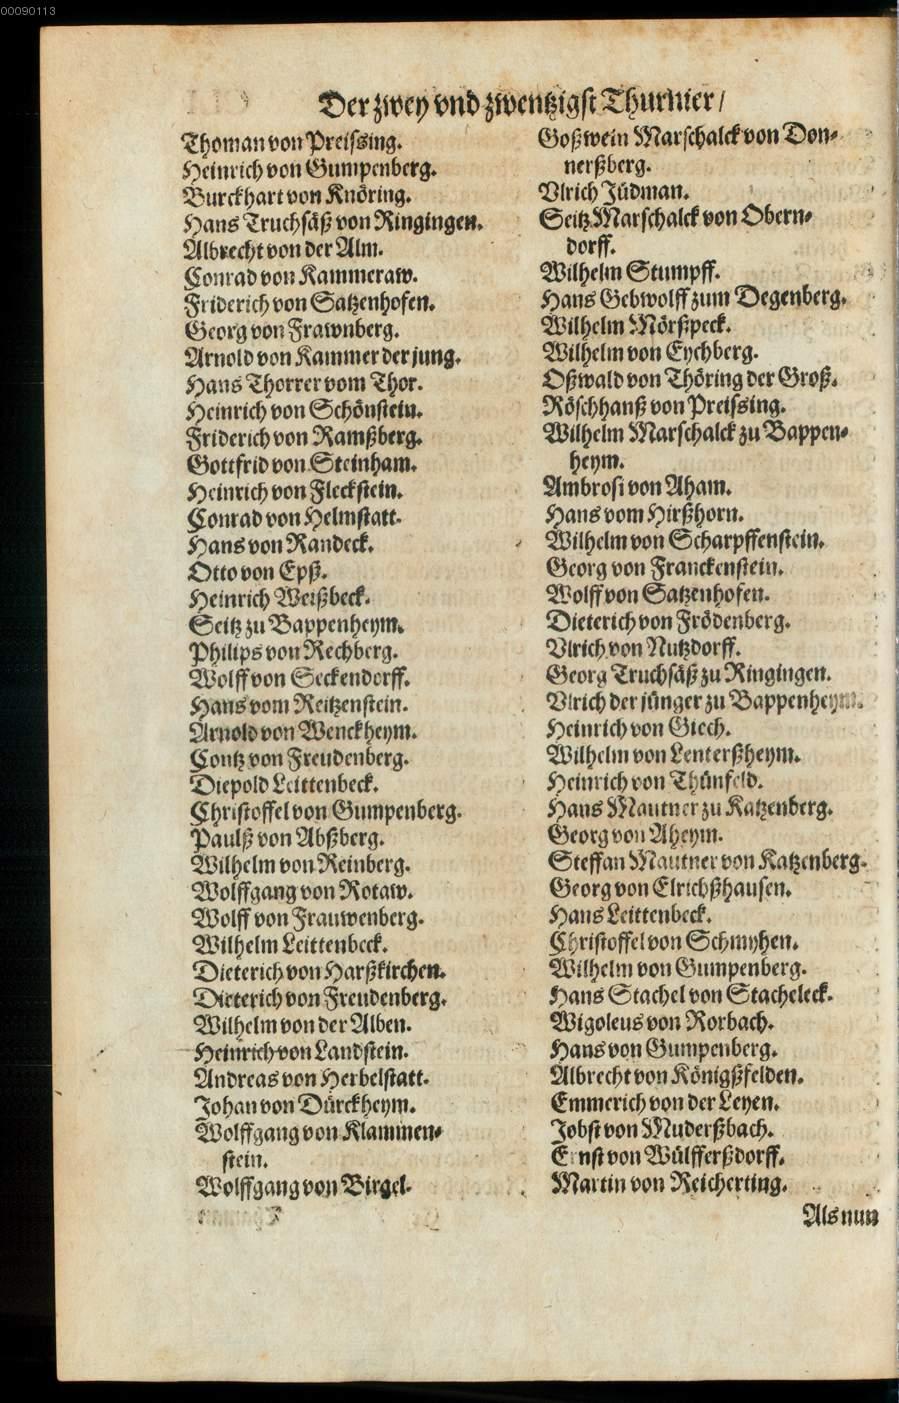 00090113
Der zwey vnd zwentzigst Thurnier/
Thoman von Preissing.
Heinrich von Gumpenberg.
Burckhart von Knöring.
Hans Truchsäß von Ringingen.
Albrecht von der Alm.
Conrad von Kammeraw.
Friderich von Satzenhofen.
Georg von Frawnberg.
Arnold von Kammer der jung.
Hans Thorrer vom Thor.
Heinrich von Schönstein.
Friderich von Ramßberg.
Gottfrid von Steinham.
Heinrich von Fleckstein.
Conrad von Helmstatt.
Hans von Randeck.
Otto von Epß.
Heinrich Weißbeck.
Seitz zu Bappenheym.
Philips von Rechberg.
Wolff von Seckendorff.
Hans vom Reitzenstein.
Arnold von Wenckheym.
Contz von Freudenberg.
Diepold Leittenbeck.
Christoffel von Gumpenberg.
Paulß von Abßberg.
Wilhelm von Reinberg.
Wolffgang von Rotaw.
Wolff von Frauwenberg.
Wilhelm Leittenbeck.
Dieterich von Harßkirchen.
Dieterich von Freudenberg.
Wilhelm von der Alben.
Heinrich von Landstein.
Andreas von Herbelstatt.
Johan von Dürckheym.
Wolffgang von Klammen-
stein.
Wolffgang von Birgel.
Goßwein Marschalck von Don-
nerßberg.
Vlrich Jüdman.
Seitz Marschalck von Obern-
dorff.
Wilhelm Stumpff.
Hans Gebwolff zum Degenberg.
Wilhelm Mörßpeck.
Wilhelm von Eychberg.
Oßwald von Thöring der Groß.
Röschhanß von Preissing.
Wilhelm Marschalck zu Bappen-
heym.
Ambrosi von Aham.
Hans vom Hirßhorn.
Wilhelm von Scharpffenstein.
Georg von Franckenstein.
Wolff von Satzenhofen.
Dieterich von Frödenberg.
Vlrich von Nutzdorff.
Georg Truchsäß zu Ringingen.
Vlrich der jünger zu Bappenheym.
Heinrich von Giech.
Wilhelm von Lenterßheym.
Heinrich von Thünfeld.
Hans Mautner zu Katzenberg.
Georg von Aheym.
Steffan Mautner von Katzenberg.
Georg von Elrichßhausen.
Hans Leittenbeck.
Christoffel von Schmyhen.
Wilhelm von Gumpenberg.
Hans Stachel von Stacheleck.
Wigoleus von Rorbach.
Hans von Gumpenberg.
Albrecht von Königßfelden.
Emmerich von der Leyen.
Jobst von Muderßbach.
Ernst von Wülfferßdorff.
Martin von Reicherting.
Als nun